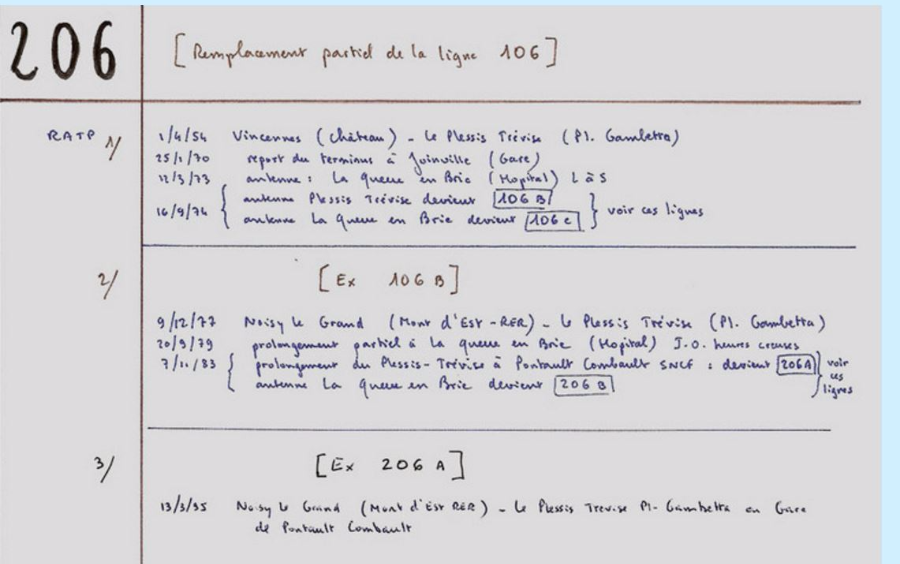 206 [Remplacement partiel de la ligne 106]
RATP 1/ 1/4/54 Vincennes (Château) - Le Plessis Trévise (Pl. Gambetta)
25/1/70 report du terminus à Joinville (Gare)
12/3/73 antenne : La Queue en Brie (Hopital) L à S
16/9/74 { antenne Plessis Trévise devient 106 B
antenne La Queue en Brie devient 106 C } voir ces lignes
2/ [Ex 106 B]
9/12/77 Noisy le Grand (Mont d'Est - RER) - Le Plessis Trévise (Pl. Gambetta)
20/9/79 prolongement partiel à La Queue en Brie (Hopital) J.O. heures creuses
7/11/83 { prolongement du Plessis-Trévise à Pontault Combault SNCF : devient 206A } voir
antenne La Queue en Brie devient 206 B ces
lignes
3/ [Ex 206 A]
13/3/95 Noisy le Grand (Mont d'Est RER) - Le Plessis Trevise Pl. Gambetta ou Gare
de Pontault Combault